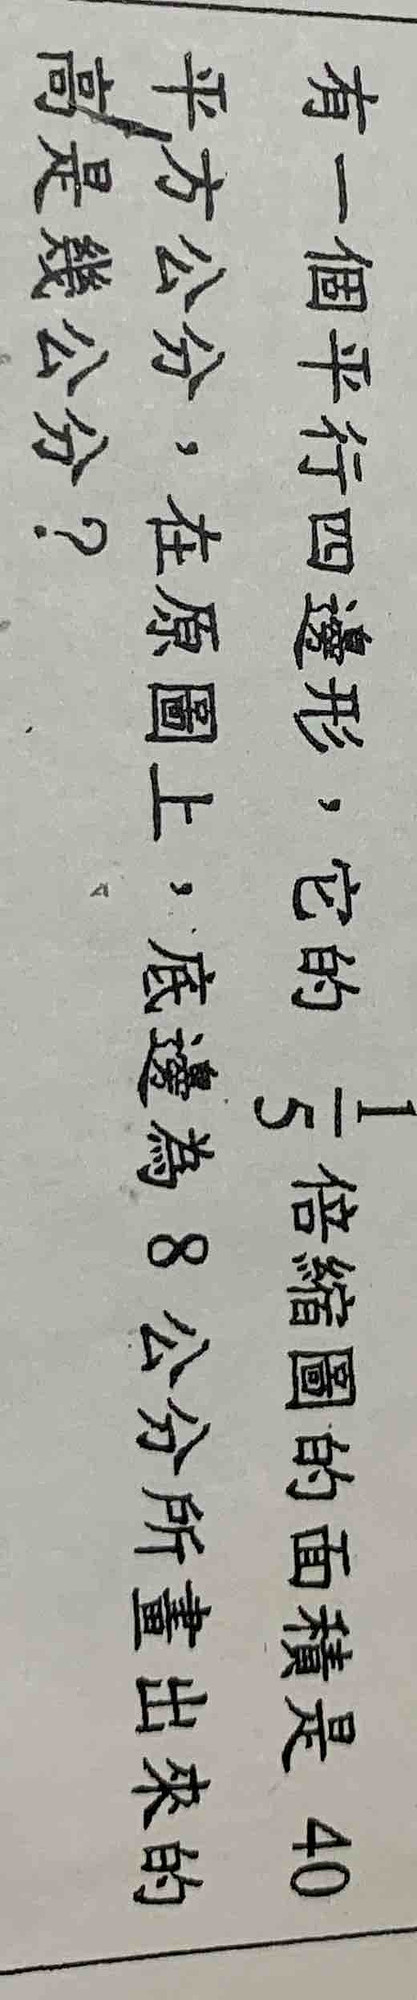 有一個平行四邊形，它的 1/5 倍縮圖的面積是 40
平方公分，在原圖上，底邊為 8 公分所畫出來的
高是幾公分？